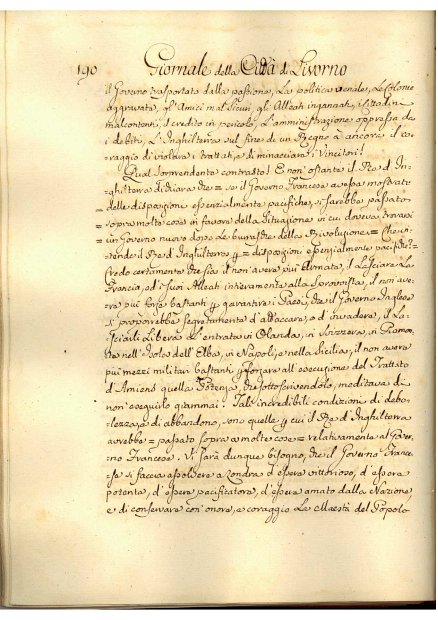 190 Giornale della Città di Livorno
il Governo trasportato dalla passione, La politica venale, Le Colonie
aggravate, gl'Amici mal sicuri, gli Alleati ingannati, i Cittadini
malcontenti, il credito in pericolo, L'amministrazione oppressa da
i debiti, L'Inghilterra sul fine di un Regno à ancora il co-
raggio di violare i trattati, e di minacciare i Vincitori!
Qual sorprendente contrasto! E non ostante il Re d'In-
ghilterra dichiara che = se il Governo Francese avesse mostrato
delle disposizioni essenzialmente pacifiche, si sarebbe passato
= sopra molte cose in favore della situazione in cui doveva trovarsi
= un Governo nuovo dopo le burrasche della Rivoluzione = Che in-
tende il Re d'Inghilterra = disposizioni essenzialmente pacifiche?
credo certamente che sia il non aver più armata, il Lasciare La
Francia, ed i suoi Alleati intieramente alla sprovvista, il non ave-
re più forze bastanti garantire i Paesi, che il Governo Inglese
si proporrebbe segretamente d'attaccare, o d'invadere, il La-
sciarli Libera L'entrata in Olanda, in Svizzera, in Piemon-
te nell'Isola dell'Elba, in Napoli, e nella Sicilia, il non avere
più mezzi militari bastanti sforzare all'esecuzione del Trattato
d'Amiens quella Potenza, che sottoscrivendolo, meditava di
non eseguirlo giammai! Tali incredibili condizioni di debo-
lezza, e di abbandono, sono quelle cui il Re d'Inghilterra
avrebbe = passato sopra a molte cose = relativamente al Gover-
no Francese. Vi sarà dunque bisogno, che il Governo France-
se si faccia assolvere a Londra d'essere vittorioso, d'essere
potente, d'essere pacificatore, d'essere amato dalla Nazione,
e di conservare con onore, e coraggio La Maestà del Popolo